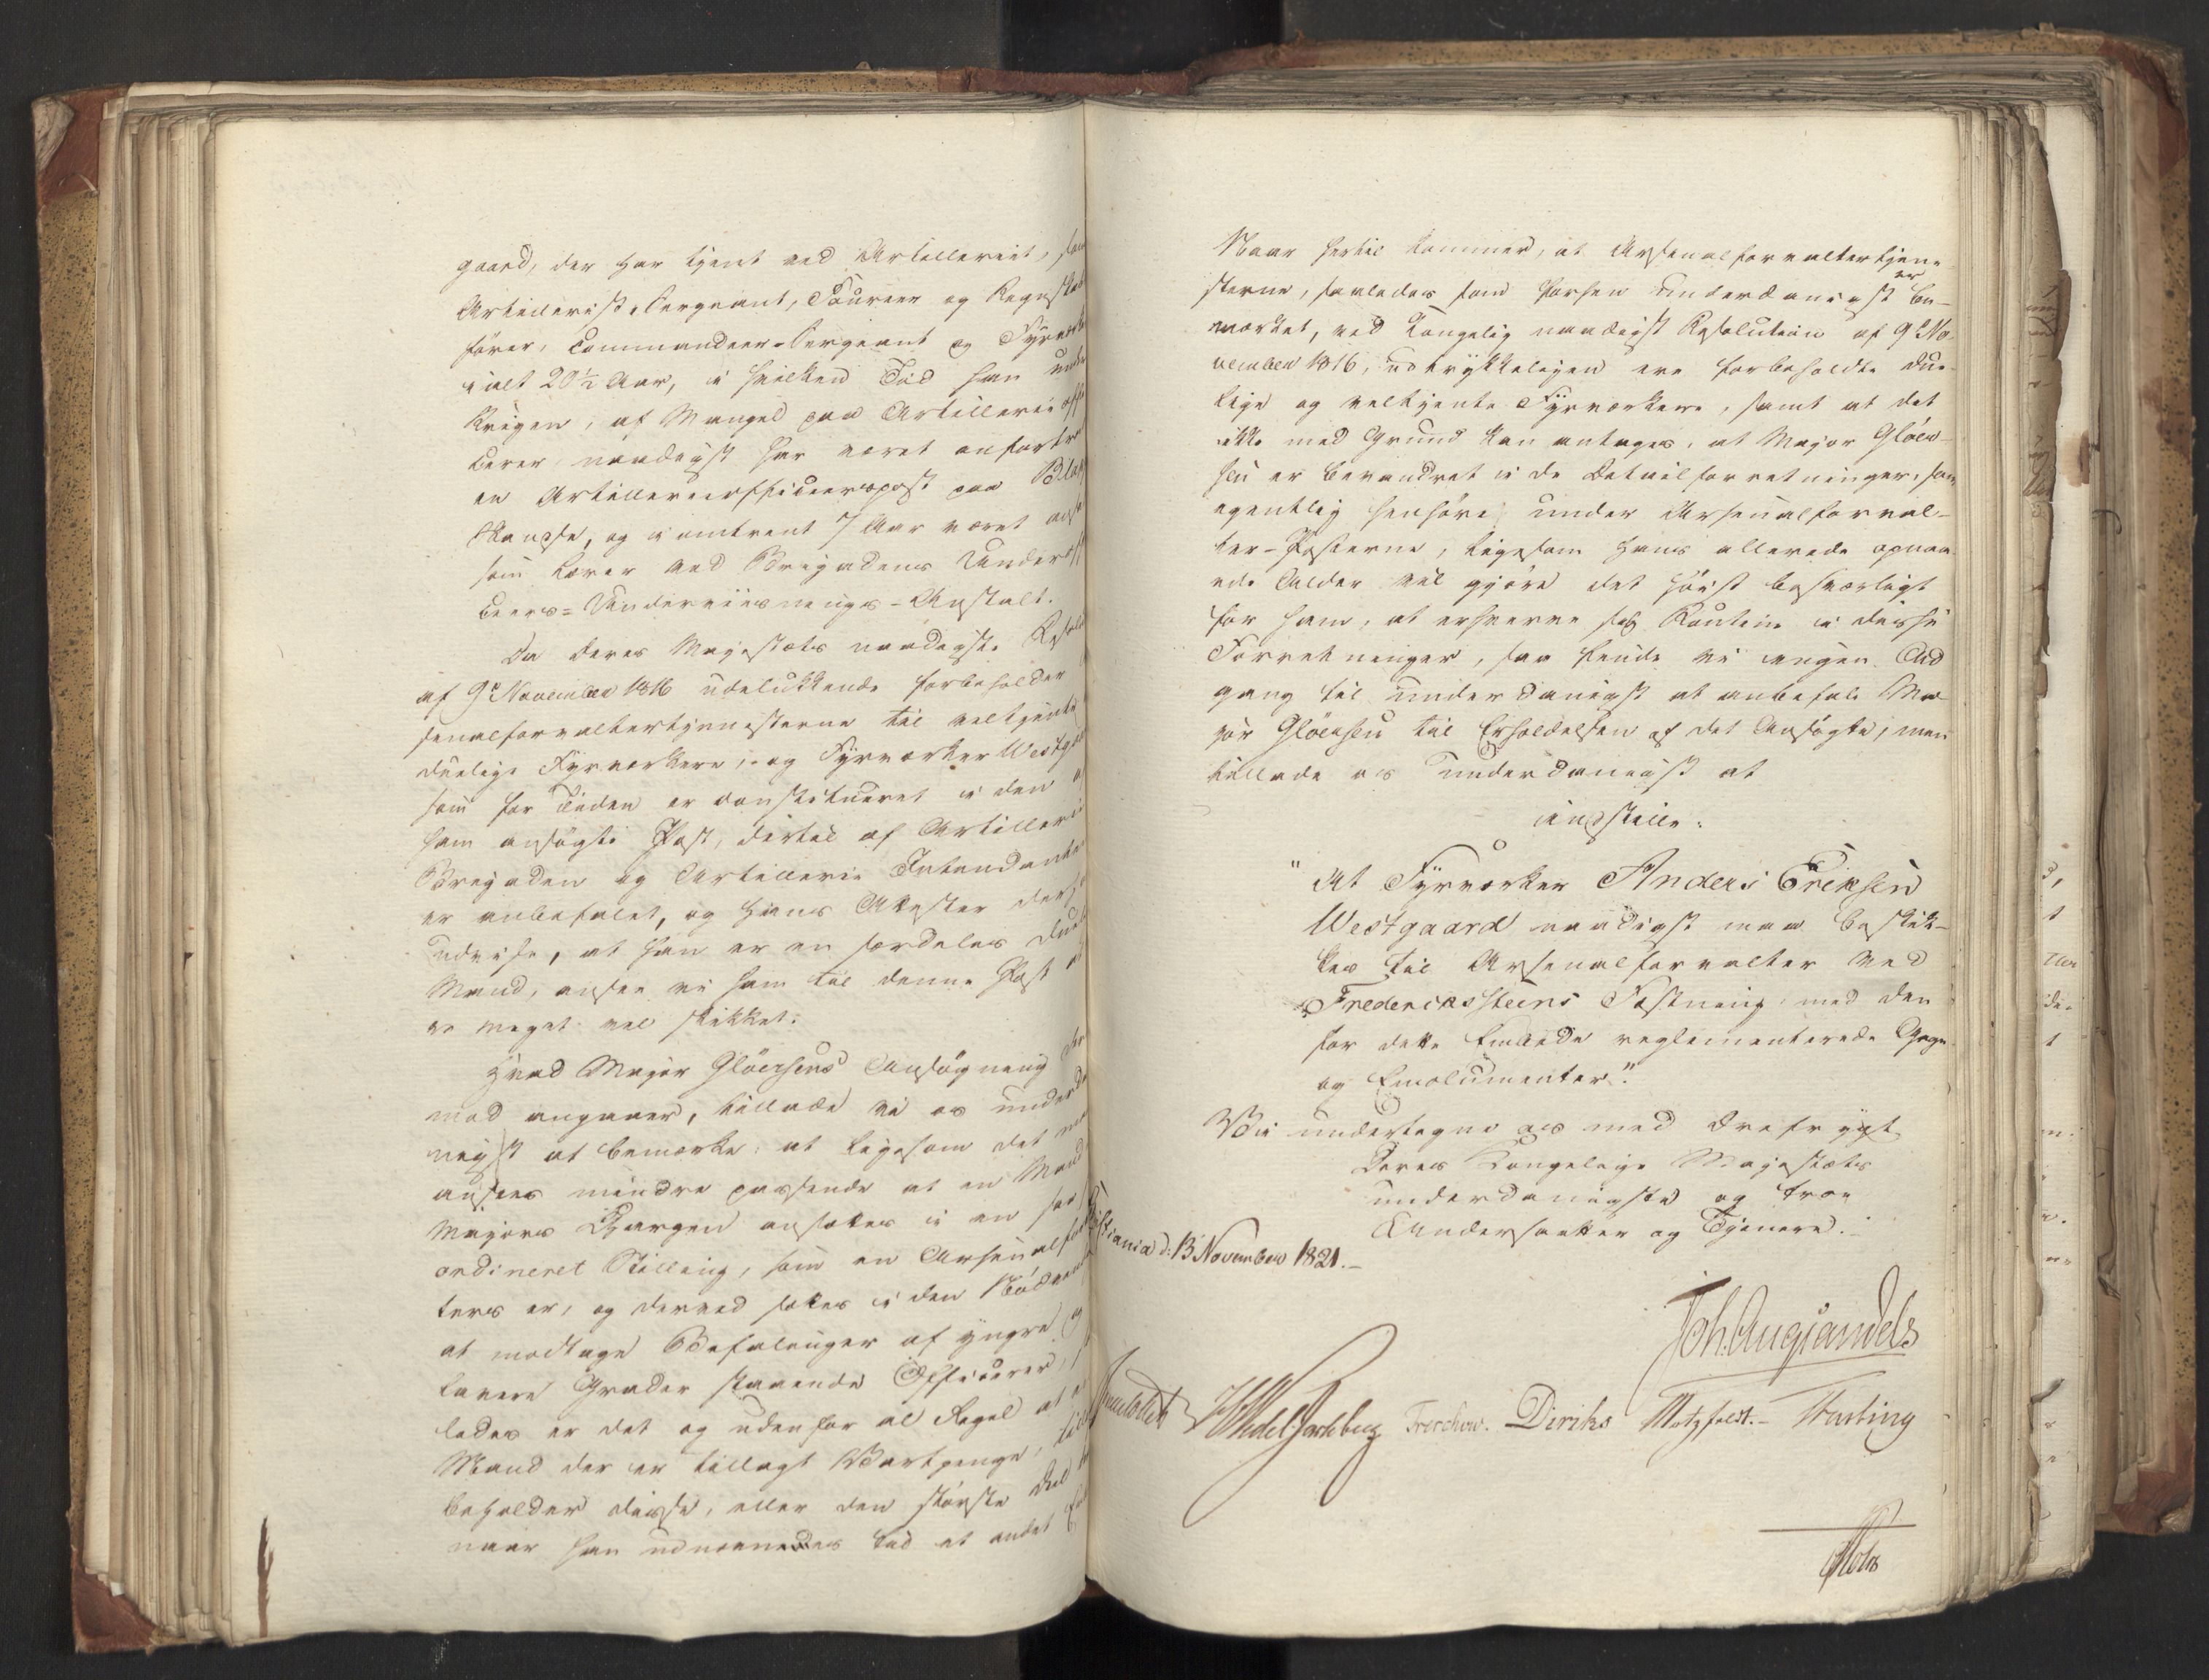 gaard, der har tjent ved Artilleriet, som
Artillerist, Sergeant, Foureer og Regnskabs
fører, Commandeer-Sergeant og Fyrværker
i alt 20½ Aar, i hvilken Tid han under
Krigen, af Mangel paa Artillerie offi
cerer, naadigst har været anfortroet
en Artillerieofficeerspost paa Blak
Skandse, og i omtrent 7 Aar været ansat
som Lærer ved Brigadens Underoffi
ceers-Underviisnings-Anstalt.
Da Deres Majestæts naadigste Resolu
af 9de November 1816 udelukkende forbeholder
senalforvaltertjenesterne til veltjente
duelige Fyrværkere, og Fyrværker Westga
som for Tiden er constitueret i den af
ham ansøgte Post, dertil af Artillerie
Brigaden og Artillerie Intendanten
er anbefalet, og hans Attester der
udvise, at han er en særdeles duelig
Mand, ansee vi ham til denne Post at
være meget vel skikket.
Hvad Major Gløersens Ansøgning der
mod angaaer, tillade vi os underda
nigst at bemærke, at ligesom det maa
ansees mindre passende at en Mand
Majors Chargen ansættes i en saa
ordineret Stilling, som en Arsenalfor
ters er, og derved sættes i den Nødvendig
at modtage Befalinger af yngre og
lavere Grader staaende Officerer,
ledes er det og udenfor al Regel at
Mand der er tillagt Vartpenge,
beholder disse, eller den største Deel
naar han udnævnedes ved et andet
Naar hertil kommer, at Arsenalforvaltertjene-
sterne, saaledes som forhen underdanigst er be-
mærket, ved Kongelig naadigst Resolution af 9de No-
vember 1816, udtrykkeligen ere forbeholdte due-
lige og veltjente Fyrværkere, samt at det
ikke med Grund kan antages, at Major Gløer-
sen er bevandret i de Detailforretninger, som
egentlig henhøre under Arsenalforval-
ter-Posterne, ligesom hans allerede opnaa-
ede Alder vil gjøre det høist besværligt
for ham, at erhverve sig Routine i disse
Forretninger, saa finde vi ingen Ad-
gang til underdanigst at anbefale Ma-
jor Gløersen til Erholdelsen af det Ansøgte, men
tillade os underdanigst at
indstille:
"At Fyrværker Anders Eriksen
Westgaard naadigst maa beskik-
kes til Arsenalforvalter ved
Fredericssteens Fæstning med den
for dette Embede reglementerede Gage
og Emolumenter".
Vi undertegne os med Ærefrygt
Deres Kongelige Majestæts
underdanigste og troe
Undersaatter og Tjenere.
istiania d: 13 November 1821.-
Joh: Aug: Sandels
Sommerfeldt WedelJarlsberg Treschow. Diriks Motzfeldt.- Fasting
Holst